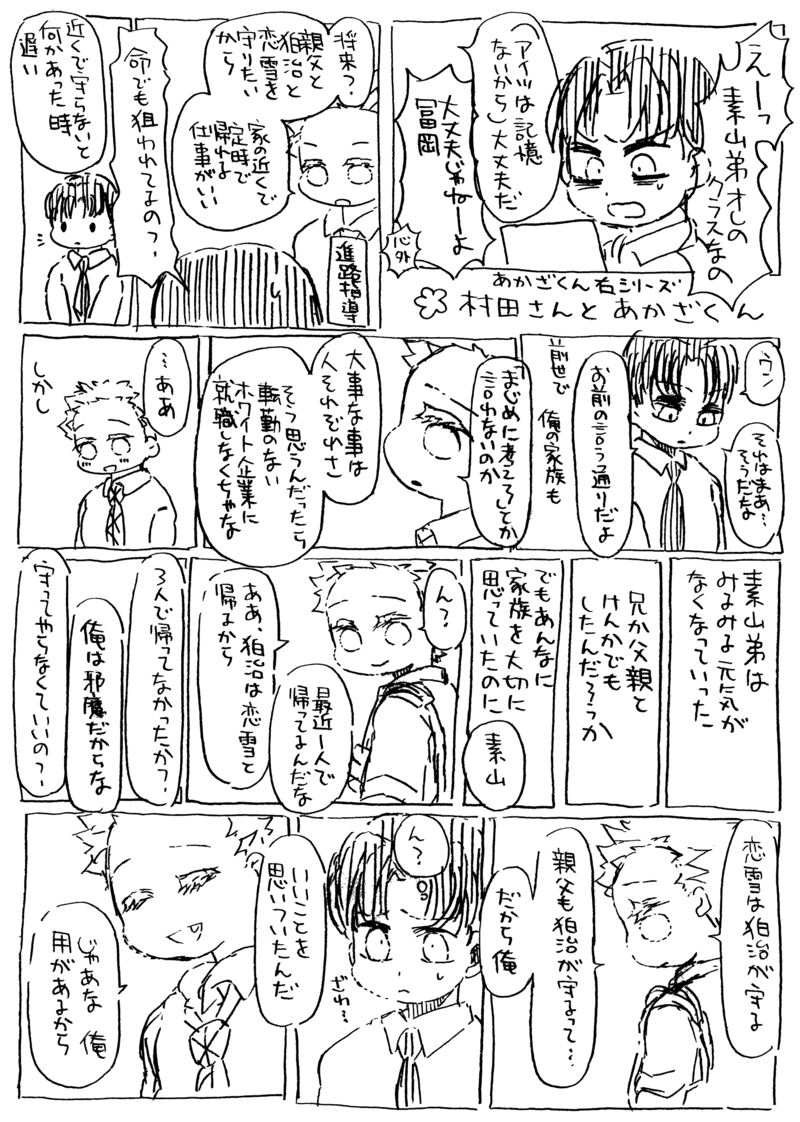 えーっ
素山弟オレの
クラスなの
アイツは記憶
ないから大丈夫だ
大丈夫じゃねーよ
冨岡
心外
あかざくん右シリーズ
村田さんとあかざくん
将来?
親父と
狛治と
恋雪を
守りたい
から
家の近くで
定時で
帰れる
仕事がいい
進路指導
命でも狙われてるの?
近くで守らないと
何かあった時
遅い
ウン
それはまあ…
そうだな
お前の言う通りだよ
前世で
俺の家族も
まじめに考えろしてか
言わないのか
大事な事は
人それぞれさ
そう思うんだったら
転勤のない
ホワイト企業に
就職しなくちゃな
…ああ
しかし
素山弟は
みるみる元気が
なくなっていった
兄か父親と
けんかでも
したんだろうか
でもあんなに
家族を大切に
思っていたのに
素山
ん?
最近1人で
帰ってるんだな
ああ、狛治は恋雪と
帰るから
3人で帰ってなかったか?
俺は邪魔だからな
守ってやらなくていいの?
恋雪は狛治が守る
親父も狛治が守るって…
だから俺
ん?
ざわ…
いいことを
思いついたんだ
じゃあな 俺
用があるから